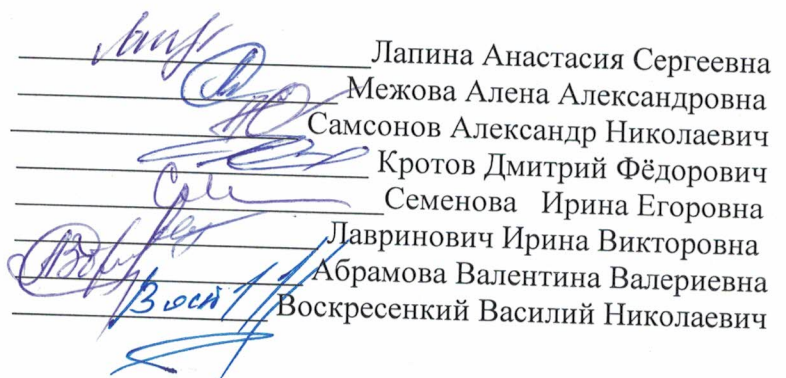 Лапина Анастасия Сергеевна
Межова Алена Александровна
Самсонов Александр Николаевич
Кротов Дмитрий Фёдорович
Семенова Ирина Егоровна
Лавринович Ирина Викторовна
Абрамова Валентина Валериевна
Воскресенкий Василий Николаевич